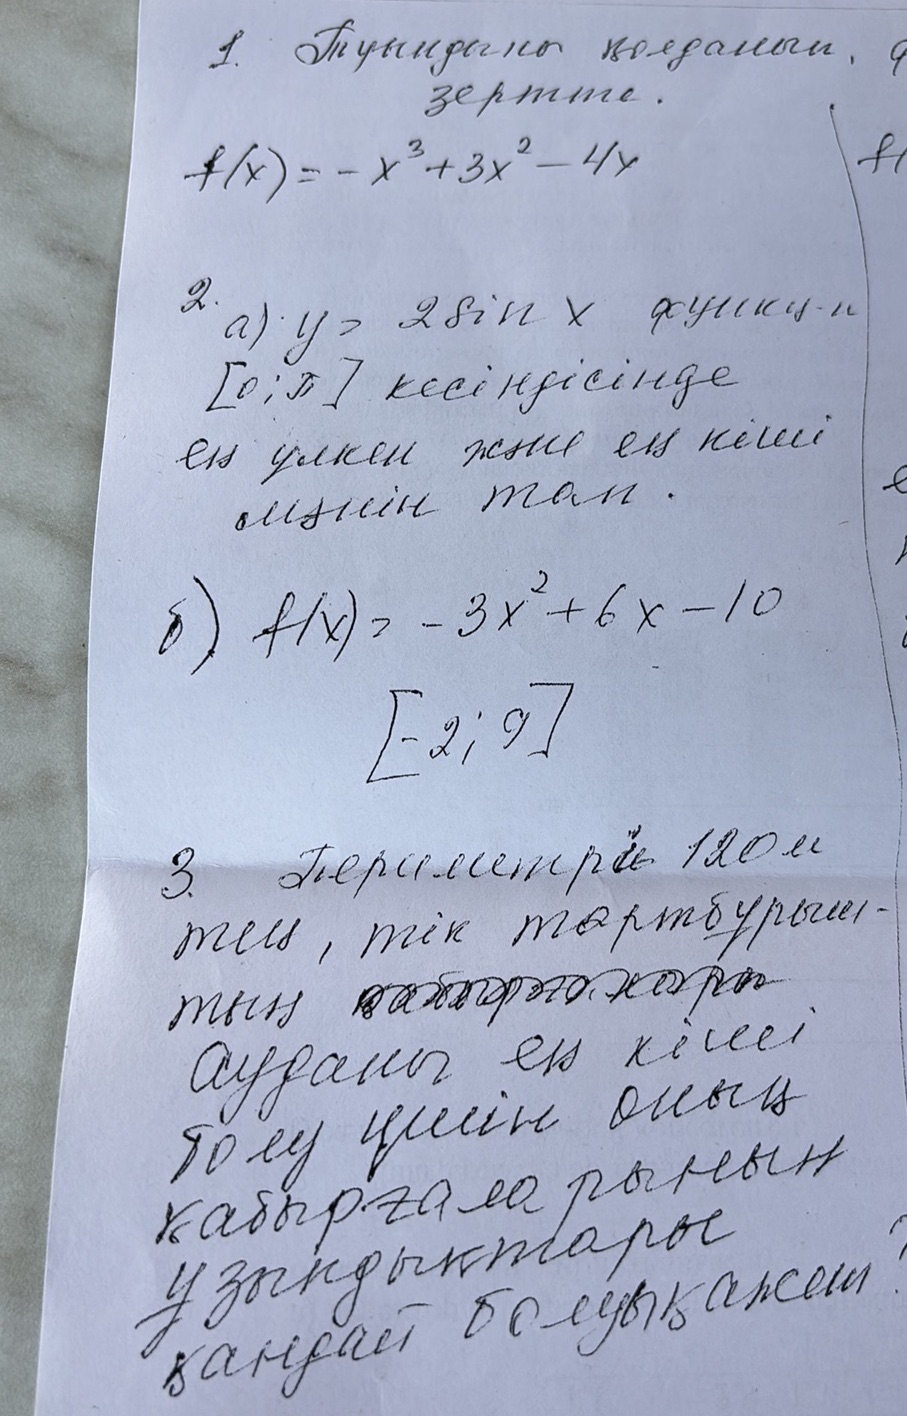 1. Туындыны қолданып,
зертте.
f(x) = - x³ + 3x² - 4x
f(
2.
а) y = 2 sin x функц-ң
[0; π] кесіндісінде
ең үлкен және ең кіші
мәнін тап.
б) f(x) = - 3x² + 6x - 10
[-2; 9]
3. Периметрі 120 м
тең, тік төртбұрыш-
тың
ауданы ең кіші
болу үшін оның
қабырғаларының
ұзындықтары
қандай болуы қажет?